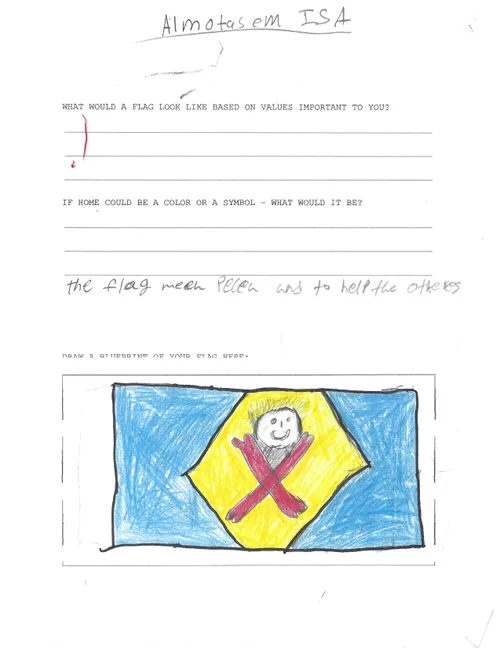 Almotasem ISA
WHAT WOULD A FLAG LOOK LIKE BASED ON VALUES IMPORTANT TO YOU?
IF HOME COULD BE A COLOR OR A SYMBOL – WHAT WOULD IT BE?
the flag meen and to help the otheres
DRAW A BLUEPRINT OF YOUR FLAG HERE: